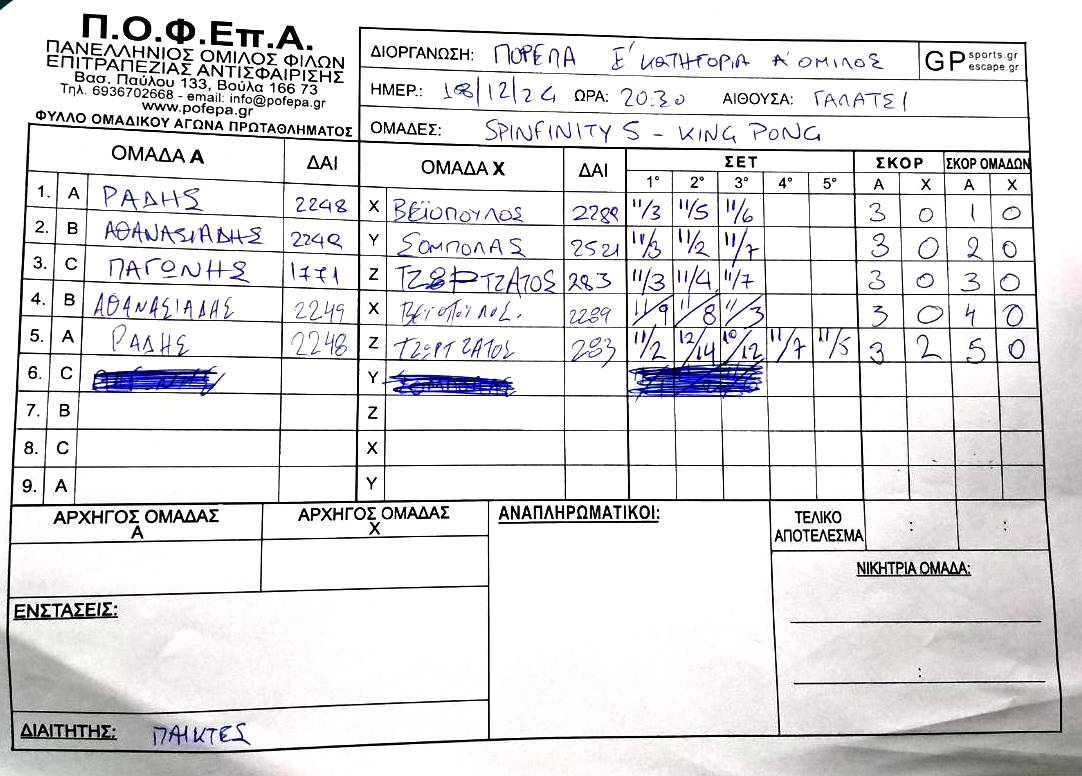 Π.Ο.Φ.Επ.Α.
ΠΑΝΕΛΛΗΝΙΟΣ ΟΜΙΛΟΣ ΦΙΛΩΝ
ΕΠΙΤΡΑΠΕΖΙΑΣ ΑΝΤΙΣΦΑΙΡΙΣΗΣ
Βασ. Παύλου 133, Βούλα 166 73
Τηλ. 6936702668 - email: info@pofepa.gr
www.pofepa.gr
ΦΥΛΛΟ ΟΜΑΔΙΚΟΥ ΑΓΩΝΑ ΠΡΩΤΑΘΛΗΜΑΤΟΣ
ΔΙΟΡΓΑΝΩΣΗ: ΠΟΦΕΠΑ Ε' ΚΑΤΗΓΟΡΙΑ Α' ΟΜΙΛΟΣ
GP sports.gr
escape.gr
ΗΜΕΡ.: 18/12/24 ΩΡΑ: 20:30 ΑΙΘΟΥΣΑ: ΓΑΛΑΤΣΙ
ΟΜΑΔΕΣ: SPINFINITY 5 - KING PONG
ΟΜΑΔΑ Α ΔΑΙ ΟΜΑΔΑ Χ ΔΑΙ ΣΕΤ ΣΚΟΡ ΣΚΟΡ ΟΜΑΔΩΝ
1° 2° 3° 4° 5° Α Χ Α Χ
1. A ΡΑΔΗΣ 2248 X ΒΕΪΟΠΟΥΛΟΣ 2289 11/3 11/5 11/6 3 0 1 0
2. B ΑΘΑΝΑΣΙΑΔΗΣ 2249 Y ΣΟΜΠΟΛΑΣ 2521 11/3 11/2 11/7 3 0 2 0
3. C ΠΑΓΩΝΗΣ 1771 Z ΤΖΩΡΤΖΑΤΟΣ 283 11/3 11/4 11/7 3 0 3 0
4. B ΑΘΑΝΑΣΙΑΔΗΣ 2249 X Βεϊοπουλος 2289 11/9 11/8 11/3 3 0 4 0
5. A ΡΑΔΗΣ 2248 Z ΤΖΩΡΤΖΑΤΟΣ 283 11/2 12/14 10/12 11/7 11/5 3 2 5 0
6. C Y
7. B Z
8. C X
9. A Y
ΑΡΧΗΓΟΣ ΟΜΑΔΑΣ Α ΑΡΧΗΓΟΣ ΟΜΑΔΑΣ Χ ΑΝΑΠΛΗΡΩΜΑΤΙΚΟΙ: ΤΕΛΙΚΟ ΑΠΟΤΕΛΕΣΜΑ : :
ΝΙΚΗΤΡΙΑ ΟΜΑΔΑ:
ΕΝΣΤΑΣΕΙΣ:
:
ΔΙΑΙΤΗΤΗΣ: ΠΑΙΚΤΕΣ